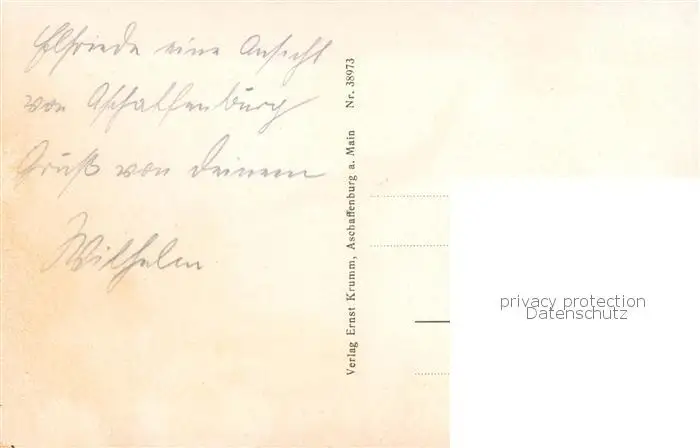 Elfriede eine Ansicht
von Aschaffenburg
Gruß von deinem
Wilhelm
Verlag Ernst Krumm, Aschaffenburg a. Main Nr. 38973
privacy protection
Datenschutz